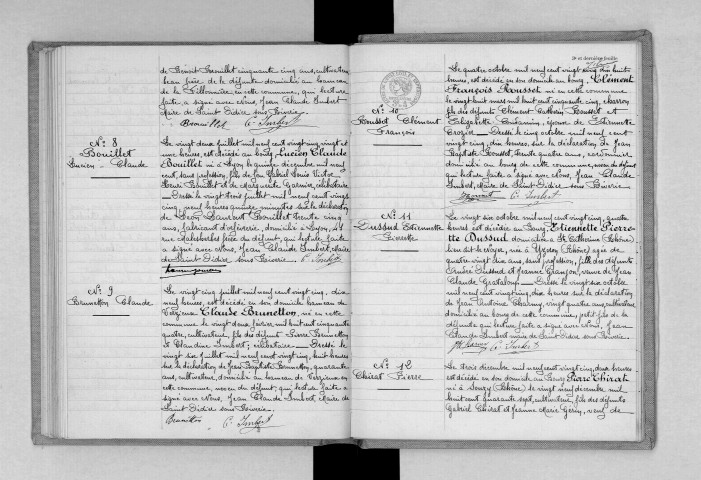 de Benoit Bouillet cinquante cinq ans, cultivateur
beau frère de la défunte domicilié au hameau
de la Billonnière en cette commune, qui lecture
faite a signé avec Nous, Jean Claude Imbert
Maire de Saint Didier sous Riverie
C. Imbert
N° 8
Bouillet
Lucien - Claude
Le vingt deux juillet mil neuf cent vingt cinq, vingt et
une heures, est décédé au bourg, Lucien Claude
Bouillet né à Lyon le quinze décembre mil neuf
cent, sans profession, fils de Jean Gabriel Louis Victor
Henri Bouillet et de Marguerite Garnier, célibataire
Dressé le vingt trois juillet mil neuf cent vingt
cinq, neuf heures quinze minutes sur la déclaration
de Léon Laurent Bouillet trente cinq
ans, fabricant d'orfèvrerie, domicilié à Lyon,
rue père du défunt, qui lecture faite
a signé avec Nous, Jean Claude Imbert, Maire
de Saint Didier sous Riverie C. Imbert
N° 9
Brunetton Claude
Le vingt cinq juillet mil neuf cent vingt cinq, dix
neuf heures, est décédé en son domicile hameau de
Claude Brunetton, né en cette
commune le vingt deux février mil huit cent cinquante
quatre, cultivateur, fils des défunts Pierre Brunetton
et Claudine Imbert; célibataire. Dressé le
vingt six juillet mil neuf cent vingt cinq, huit heures
sur la déclaration de Jean Baptiste Brunetton, quarante
ans, cultivateur, domicilié au hameau de en
cette commune neveu du défunt, qui lecture faite a
signé avec Nous, Jean Claude Imbert Maire de
Saint Didier sous Riverie.
Brunetton C. Imbert
2e et dernière feuille
N° 10
Rousset Clément
François
Le quatre octobre mil neuf cent vingt cinq dix huit
heures, est décédé en son domicile au bourg, Clément
François Rousset né en cette commune
le vingt huit mars mil huit cent cinquante cinq, charron
fils des défunts Clément Rousset et
Elisabeth, époux de Etiennette
Crozier. Dressé le cinq octobre mil neuf cent
vingt cinq, dix heures, sur la déclaration de Jean
Baptiste Rousset, trente quatre ans, cordonnier
domicilié au bourg de cette commune, neveu du défunt
qui lecture faite a signé avec Nous, Jean Claude
Imbert, Maire de Saint Didier sous Riverie
C. Imbert
N° 11
Dussud Etiennette
Pierrette
Le vingt six octobre mil neuf cent vingt cinq, quatre
heures est décédée au Bourg, Etiennette Pierre-
tte Dussud domiciliée à St Catherine (Rhône)
née à Yzeron (Rhône) agée de
quatre vingt dix ans, sans profession, fille des défunts
André Dussud et Jeanne Granjon, veuve de Jean
Claude Grataloup. Dressé le vingt six octobre
mil neuf cent vingt cinq, dix heures sur la déclaration
de Jean Antoine, vingt quatre ans, cultivateur
domicilié au bourg de cette commune, petit fils de la
défunte qui lecture faite, a signé avec Nous, Jean
Claude Imbert maire de Saint Didier sous Riverie.
C. Imbert
N° 12
Chirat Pierre
Le trois décembre mil neuf cent vingt cinq, deux heures
est décédé en son domicile au Bourg Pierre Chirat
né à (Rhône) le vingt neuf décembre mil
huit cent quarante sept, cultivateur, fils des défunts
Gabriel Chirat et Jeanne Marie Gérin, veuf de